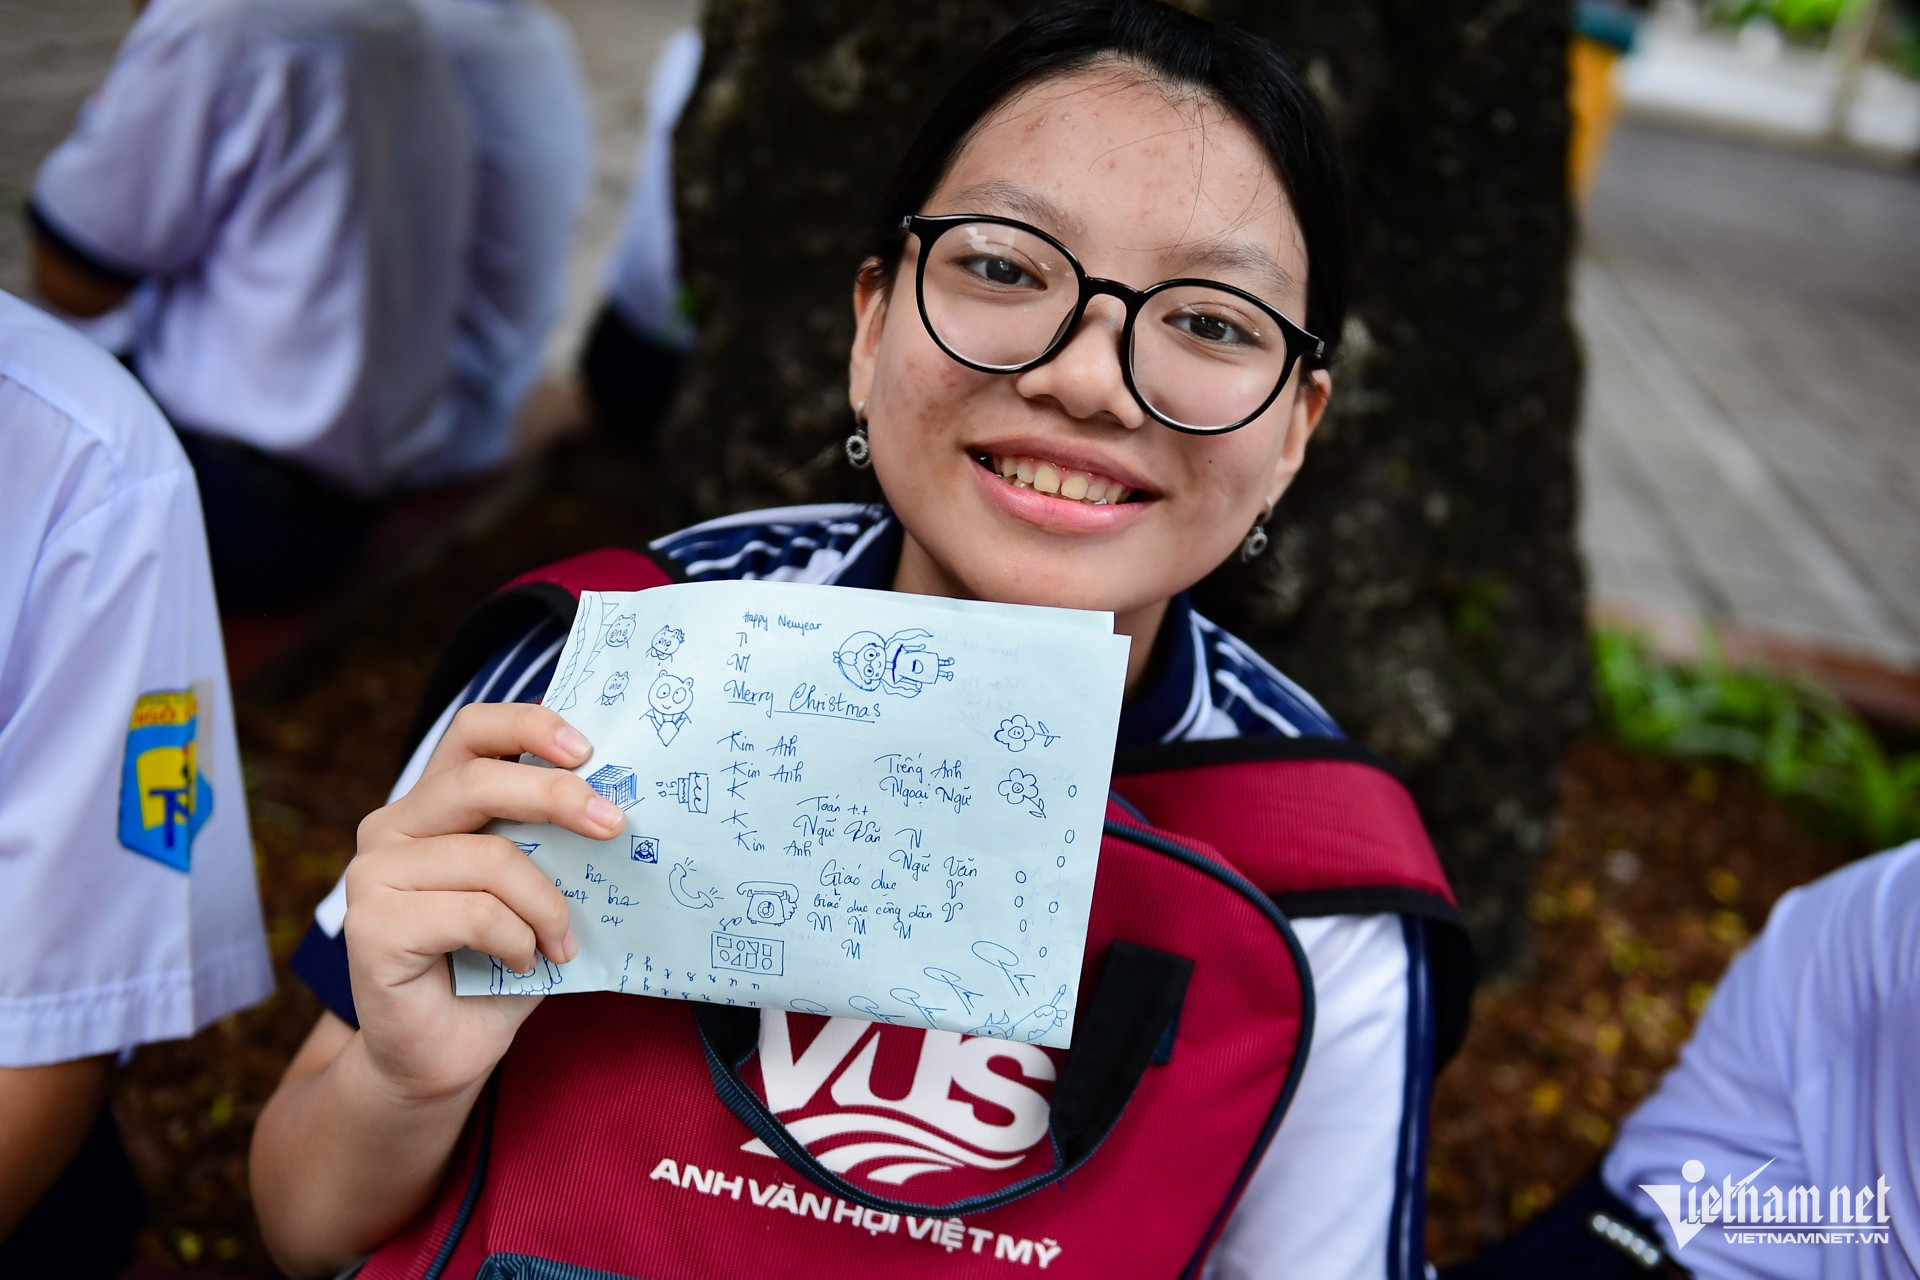 Happy Newyear
N
NT
Merry Christmas
Kim Anh
Kim Anh
K
K
Kim Anh
Tiếng Anh
Ngoại Ngữ
Toán
Ngữ Văn N
Ngữ Văn
Giáo dục V
Giáo dục công dân V
M M M
M
f y y t s n u u
f y y t s n u u
VUS
ANH VĂN HỘI VIỆT MỸ
Vietnamnet
VIETNAMNET.VN